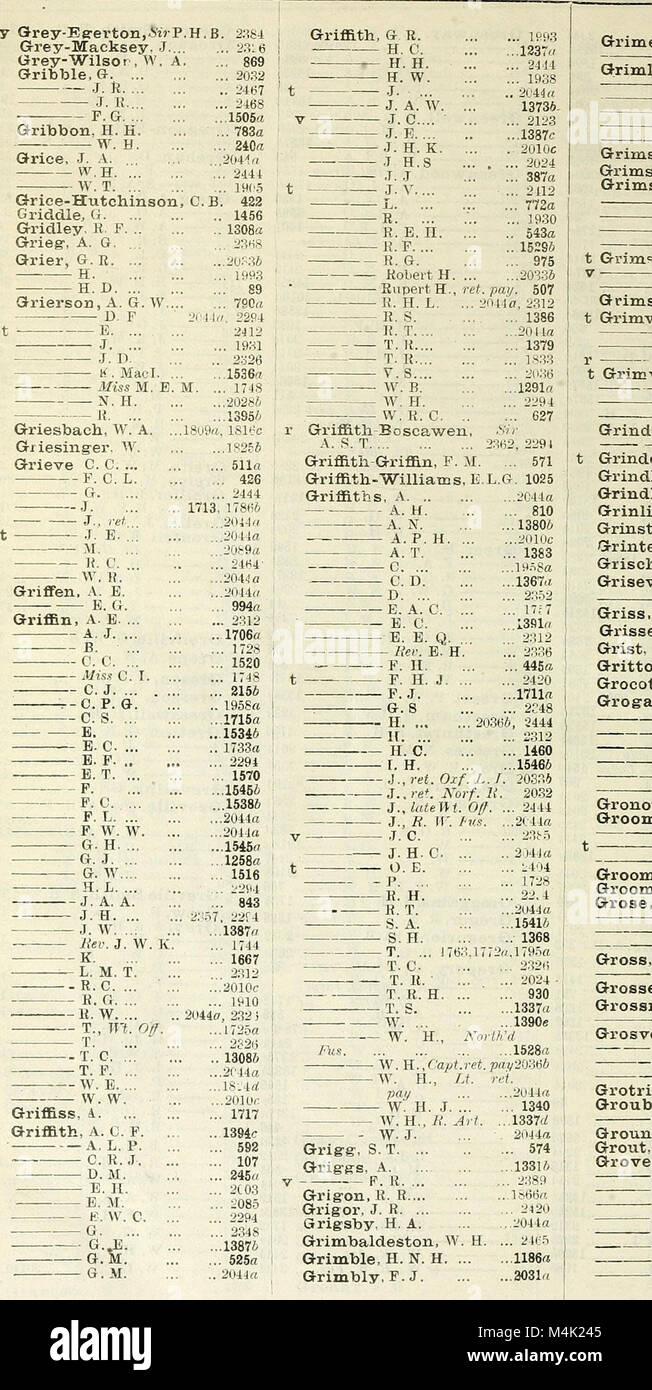 y Grey-Egerton, Sir P. H. B. 2384
Grey-Macksey, J.... ... 2316
Grey-Wilson, W. A. ... 869
Gribble, G. ... ... ... 2032
——— J. R.... ... ... 2467
——— J. R.... ... ... 2468
——— F. G. ... ... ...1505a
Gribbon, H. H. ... ... 783a
——— W. H. ... ... 240a
Grice, J. A. ... ... ...2044a
——— W. H. ... ... 2444
——— W. T. ... ... 1905
Grice-Hutchinson, C. B. 422
Griddle, G. ... ... ... 1456
Gridley, R. F. .. ... ...1308a
Grieg, A. G. ... ... 2368
Grier, G. R. ... ... ...2033b
——— H. ... ... ... 1993
——— H. D. ... ... ... 89
Grierson, A. G. W.... ... 790a
——— D. F. 2044a, 2294
t ——— E. ... ... ... 2412
——— J. ... ... ... 1931
——— J. D. ... ... 2326
——— K. MacI. ... ...1536a
——— Miss M. E. M. ... 1748
——— N. H. ... ...2028b
——— R. ... ... ...1395b
Griesbach, W. A. ...1809a, 1816c
Griesinger, W. ... ...1825b
Grieve C. C. ... ... ... 511a
——— F. C. L. ... ... 426
——— G. ... ... ... 2444
——— J. ... ... 1713, 1786b
——— J., ret... ... ...2044a
t ——— J. E. ... ... ...2044a
——— M. ... ... ...2089a
——— R. C. ... ... ... 2464
——— W. R. ... ... ...2044a
Griffen, A. E. ... ...2044a
——— E. G. ... ... 994a
Griffin, A. E. ... ... ... 2312
——— A. J. ... ... ...1706a
——— B. ... ... ... 1728
——— C. C. ... ... ... 1520
——— Miss C. I. ... ... 1748
——— C. J. ... ... ... 215b
——— C. P. G. ... .. 1958a
——— C. S. ... ... ...1715a
——— E. ... ... ...1534b
——— E. C. ... ... ...1733a
——— E. F. .. ... ... 2294
——— E. T. ... ... ... 1570
——— F. ... ... ...1545b
——— F. C. ... ... ...1538b
——— F. L. ... ... ...2044a
——— F. W. W. ... ...2044a
——— G. H. ... ... ...1545a
——— G. J. ... ... ...1258a
——— G. W.... ... ... 1516
——— H. L.... ... ... 2294
——— J. A. A. ... ... 843
——— J. H. ... ... 2357, 2294
——— J. W. ... ... ...1387a
——— Rev. J. W. K. ... 1744
——— K. ... ... ... 1667
——— L. M. T. ... ... 2312
——— R. C. ... ... ...2010c
——— R. G. ... ... ... 1910
——— R. W. ... .. 2044a,
——— T., Wt. Off. ...1725a
——— T. ... ... ... 2326
——— T. C. ... ... ...1308b
——— T. F. ... ... ...2044a
——— W. E.... ... ...
——— W. W. ... ...2010c
Griffiss, A. ... ... ... 1717
Griffith, A. C. F. ... ...1394c
——— A. L. P. ... ... 592
——— C. R. J. ... ... 107
——— D. M. ... ... 245a
——— E. H. ... ... 2003
——— E. M. ... ... 2085
——— E. W. C. ... ... 2294
——— G. ... ... ... 2348
——— G. E. ... ...1387b
——— G. M. ... ... 525a
——— G. M. ... .. 2044a
Griffith, G. R. ... ... 1993
——— H. C. ... ...1237a
——— H. H. ... ... 2444
——— H. W. ... ... 1938
t ——— J. ... ... .. 2044a
——— J. A. W. ... 1373b
v ——— J. C.... ... ... 2123
——— J. E.... ... ...1387c
——— J. H. K. ... .. 2010c
——— J. H. S ... ... 2024
——— J. J ... ... 387a
t ——— J. V.... ... ... 2412
——— L. ... ... ... 772a
——— R. ... ... ... 1930
——— R. E. H. ... ... 543a
——— R. F.... ... ...1529b
——— R. G. ... ... 975
——— Robert H. ... ...2033b
——— Rupert H., ret. pay. 507
——— R. H. L. ... 2044a, 2312
——— R. S. ... ... 1386
——— R. T.... ... ...2044a
——— T. R.... ... ... 1379
——— T. R.... ... ... 1833
——— V. S.... ... ... 2036
——— W. B. ... ...1291a
——— W. H. ... ... 2294
——— W. R. C. .. ... 627
r Griffith-Boscawen, Sir
A. S. T. ... ... ...2362, 2294
Griffith-Griffin, F. M. ... 571
Griffith-Williams, E. L. G. 1025
Griffiths, A. .. ... ...2044a
——— A. H. ... ... 810
——— A. N. ... ...1380b
——— A. P. H. ... ...2010c
——— A. T. ... ... 1383
——— C. ... ... ...1958a
——— C. D. ... ...1367a
——— D. ... ... ... 2352
——— E. A. C. ... ...
——— E. C. ... ...1391a
——— E. E. Q. ... ... 2312
——— Rev. E. H. ... 2336
——— F. H. ... ... 445a
t ——— F. H. J. ... ... 2420
——— F. J. ... ...1711a
——— G. S ... ... 2348
——— H. ... ... 2036b, 2444
——— H. ... ... ... 2312
——— H. C. ... ... 1460
——— I. H. ... ...1546b
——— J., ret. Oxf. L. I. 2033b
——— J., ret. Norf. R. 2032
——— J., late Wt. Off. ... 2444
——— J., R. W. Fus. ...2044a
v ——— J. C. ... ... 2385
——— J. H. C. ... ...2044a
t ——— O. E. ... ... 2404
——— P. ... ... ... 1728
——— R. H. ... ...
——— R. T. ... ...2044a
——— S. A. ... ...1541b
——— S. H. ... ... 1368
——— T. ... 1763, 1772a, 1795a
——— T. C. ... ... 2326
——— T. R. ... ... 2024
——— T. R. H. ... ... 930
——— T. S. ... ...1337a
——— W. ... ... ...1390e
——— W. H., North'd
Fus. ... ... ... ...1528a
——— W. H., Capt. ret. pay 2036b
——— W. H., Lt. ret.
pay ... ... ...2044a
——— W. H. J. ... ... 1340
——— W. H., R. Art. ...1337d
——— W. J. ... ... 2044a
Grigg, S. T. ... .. .. 574
Griggs, A. ... ... ...1331b
v ——— F. R. ... ... ... 2389
Grigon, R. R.... ... ...1866a
Grigor, J. R. ... ... 2420
Grigsby, H. A. ... ...2044a
Grimbaldeston, W. H. ... 2465
Grimble, H. N. H. ... ...1186a
Grimbly, F. J. ... ...2031a
Grime
Griml
Grims
Grims
Grims
t Grims
v
Grims
t Grimv
r
t Grimv
Grind
t Grinde
Grindl
Grindl
Grinli
Grinst
Grinte
Grisch
Grisev
Griss,
Grisse
Grist,
Gritto
Grocot
Groga
Grono
Groom
t
Groom
Groom
Grose,
Gross,
Grosse
Grossi
Grosve
Grotri
Groub
Groun
Grout,
Grove
alamy
alamy
alamy
alamy
Image ID: M4K245
www.alamy.com